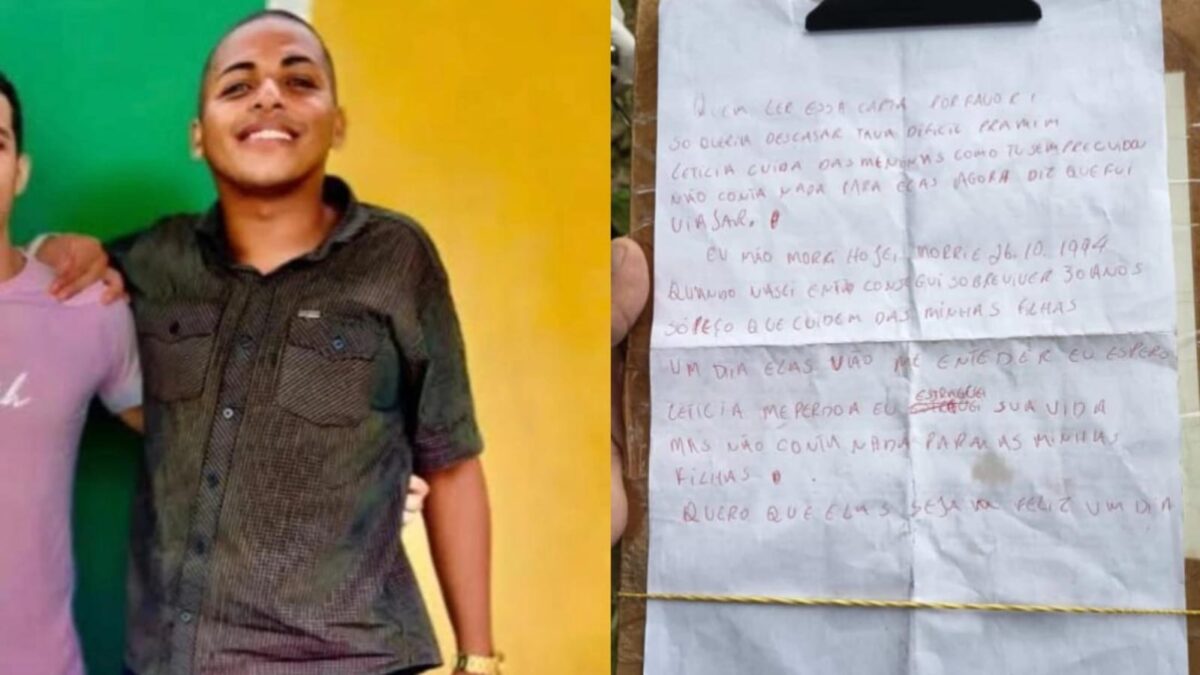 h
QUEM LER ESSA CARTA POR FAVOR!
SO QUERIA DESCASAR TAVA DIFICIL PRAMIM
LETICIA CUIDA DAS MENINAS COMO TU SEMPRE CUIDOU
NÃO CONTA NADA PARA ELAS AGORA DIZ QUE FUI
VIASAR.
EU NÃO MORRI HOJE, MORRI E 26.10.1994
QUANDO NASCI ENTÃO CONSEGUI SOBREVIVER 30 ANOS
SÓ PEÇO QUE CUIDEM DAS MINHAS FILHAS
UM DIA ELAS VÃO ME ENTEDER EU ESPERO
LETICIA ME PERDOA EU ESTRAGUEI SUA VIDA
MAS NÃO CONTA NADA PARA AS MINHAS
FILHAS.
QUERO QUE ELAS SEJA FELIZ UM DIA